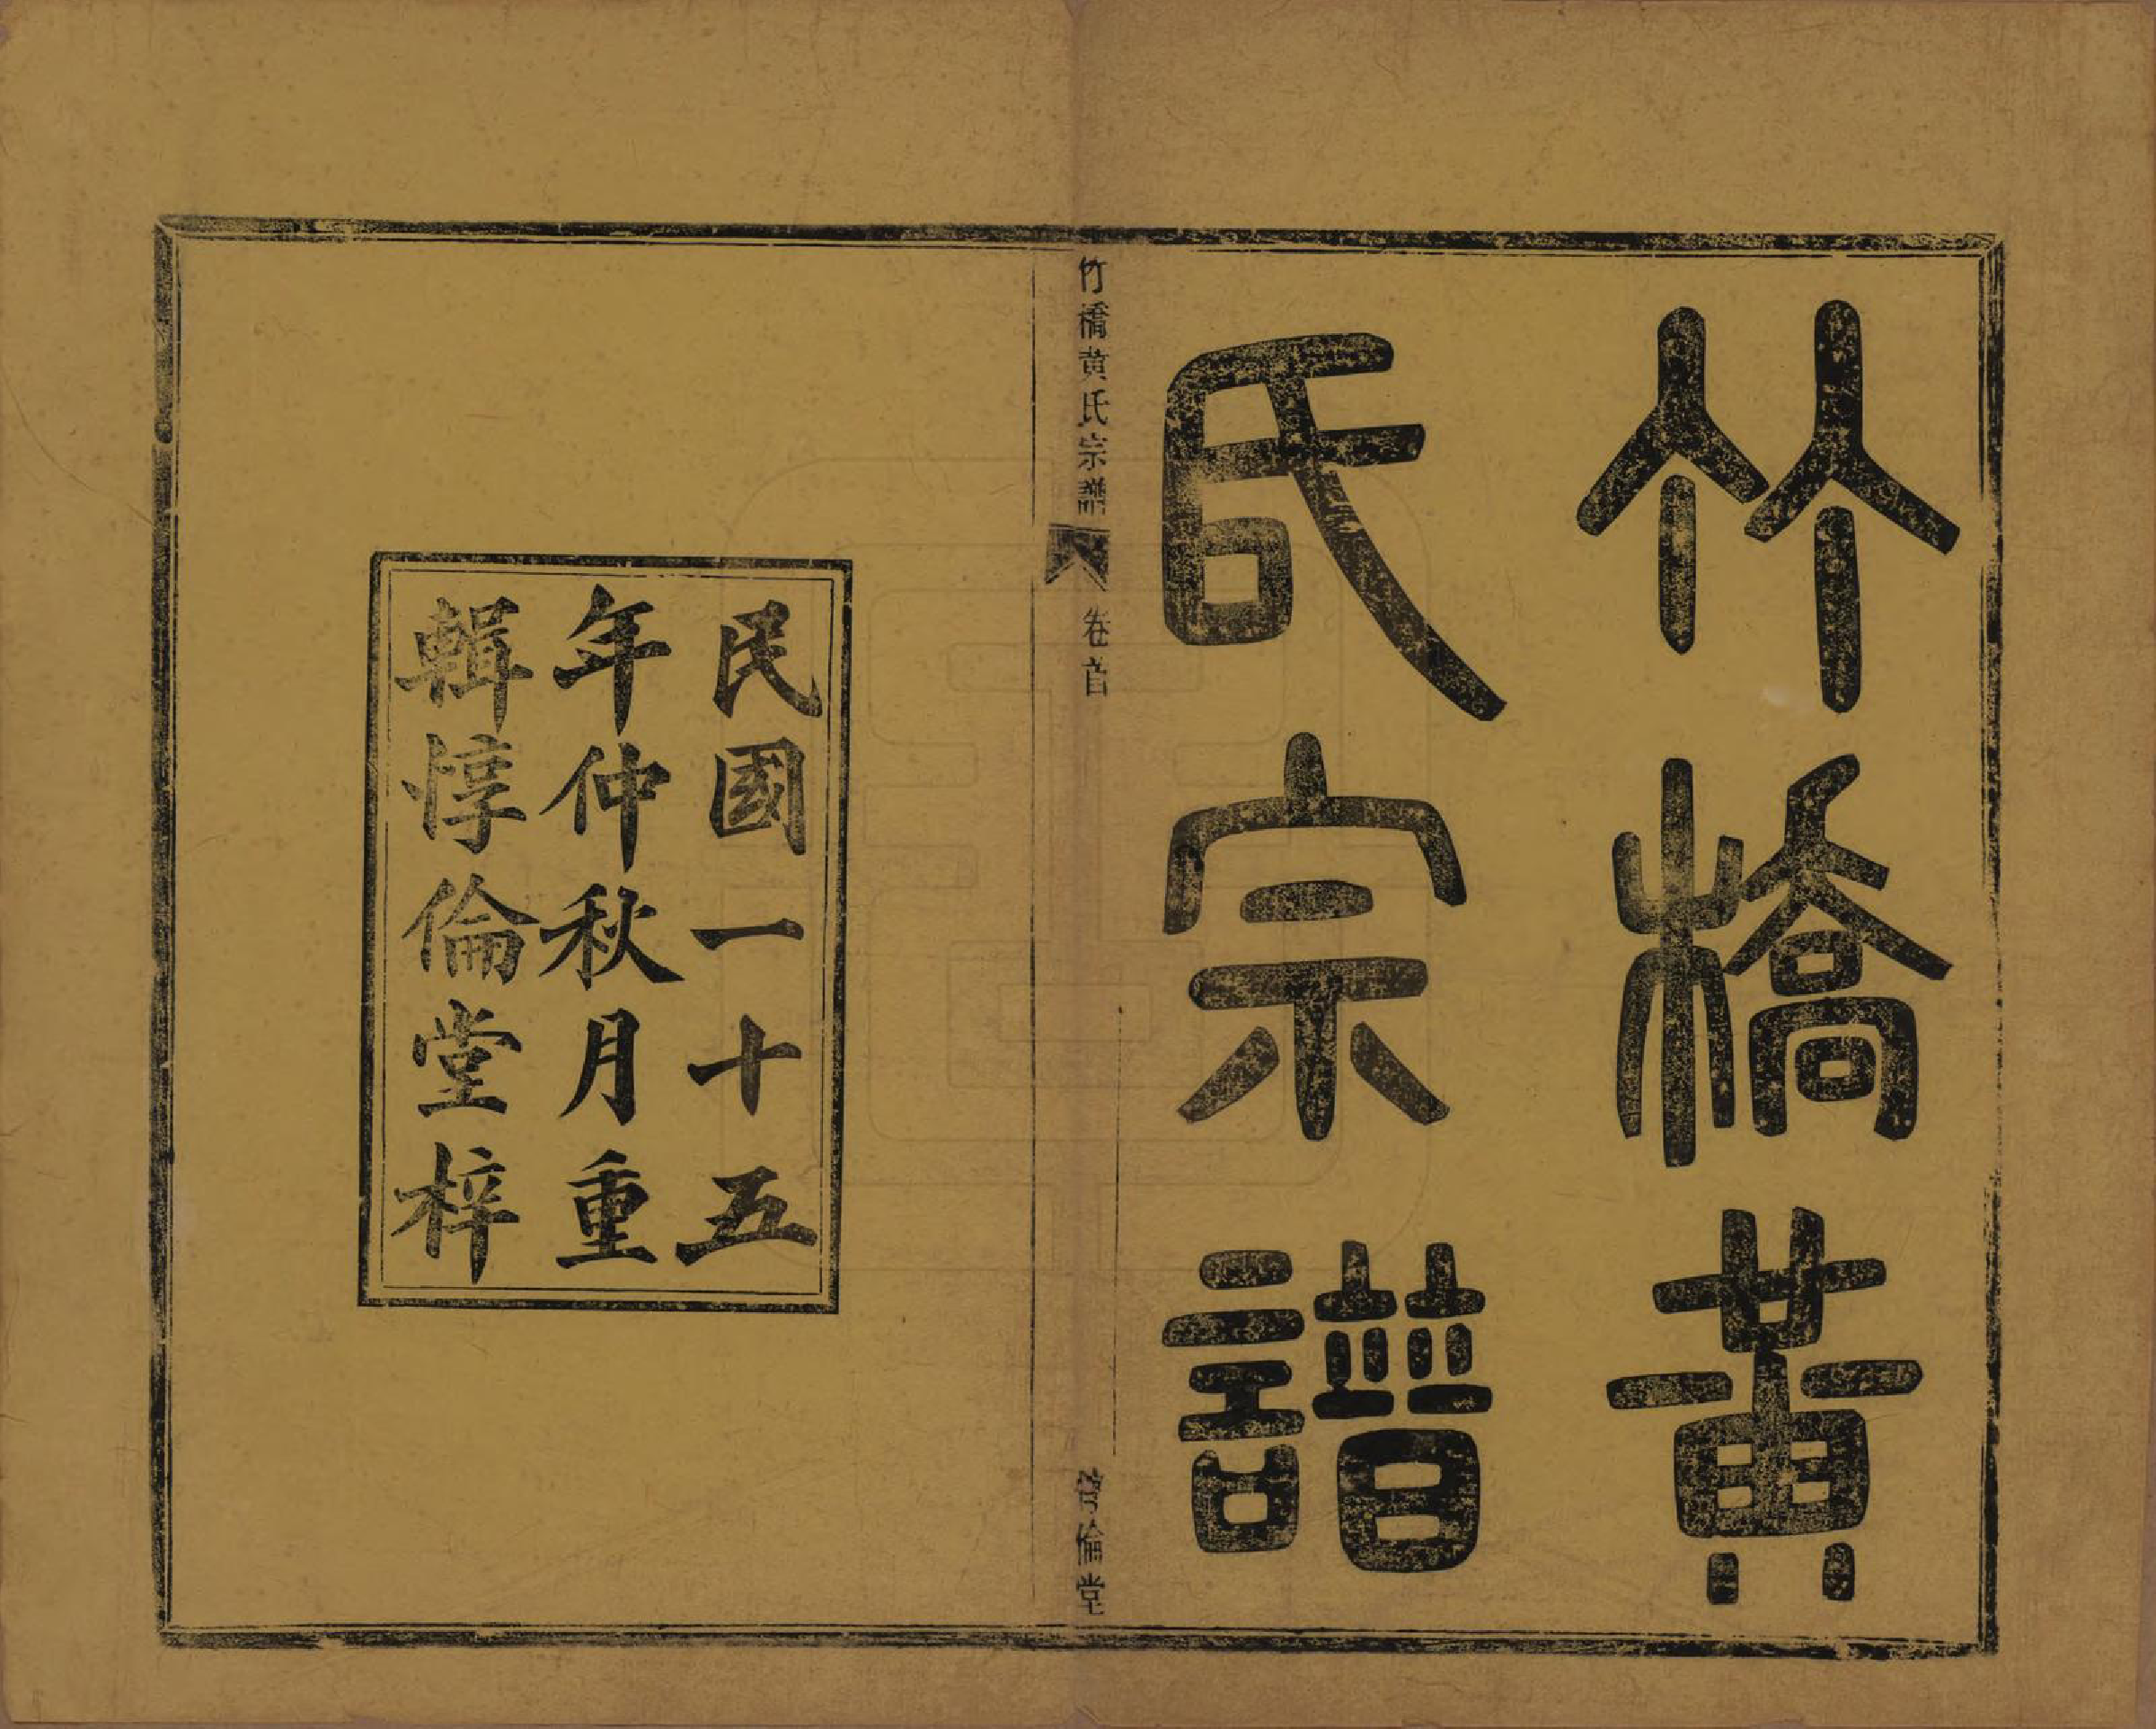 竹橋黄
氏宗譜
竹橋黄氏宗譜
卷首
惇倫堂
民國一十五
年仲秋月重
輯惇倫堂梓